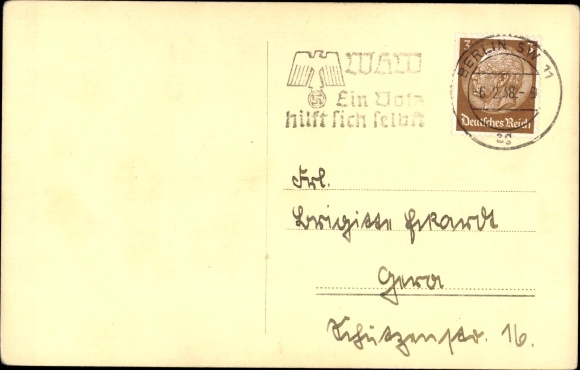 WHW
Ein Volk
hilft sich selbst
BERLIN SW 11
3
Deutsches Reich
Frl.
Brigitte Eckardt
Gera
Schützenstr. 16.